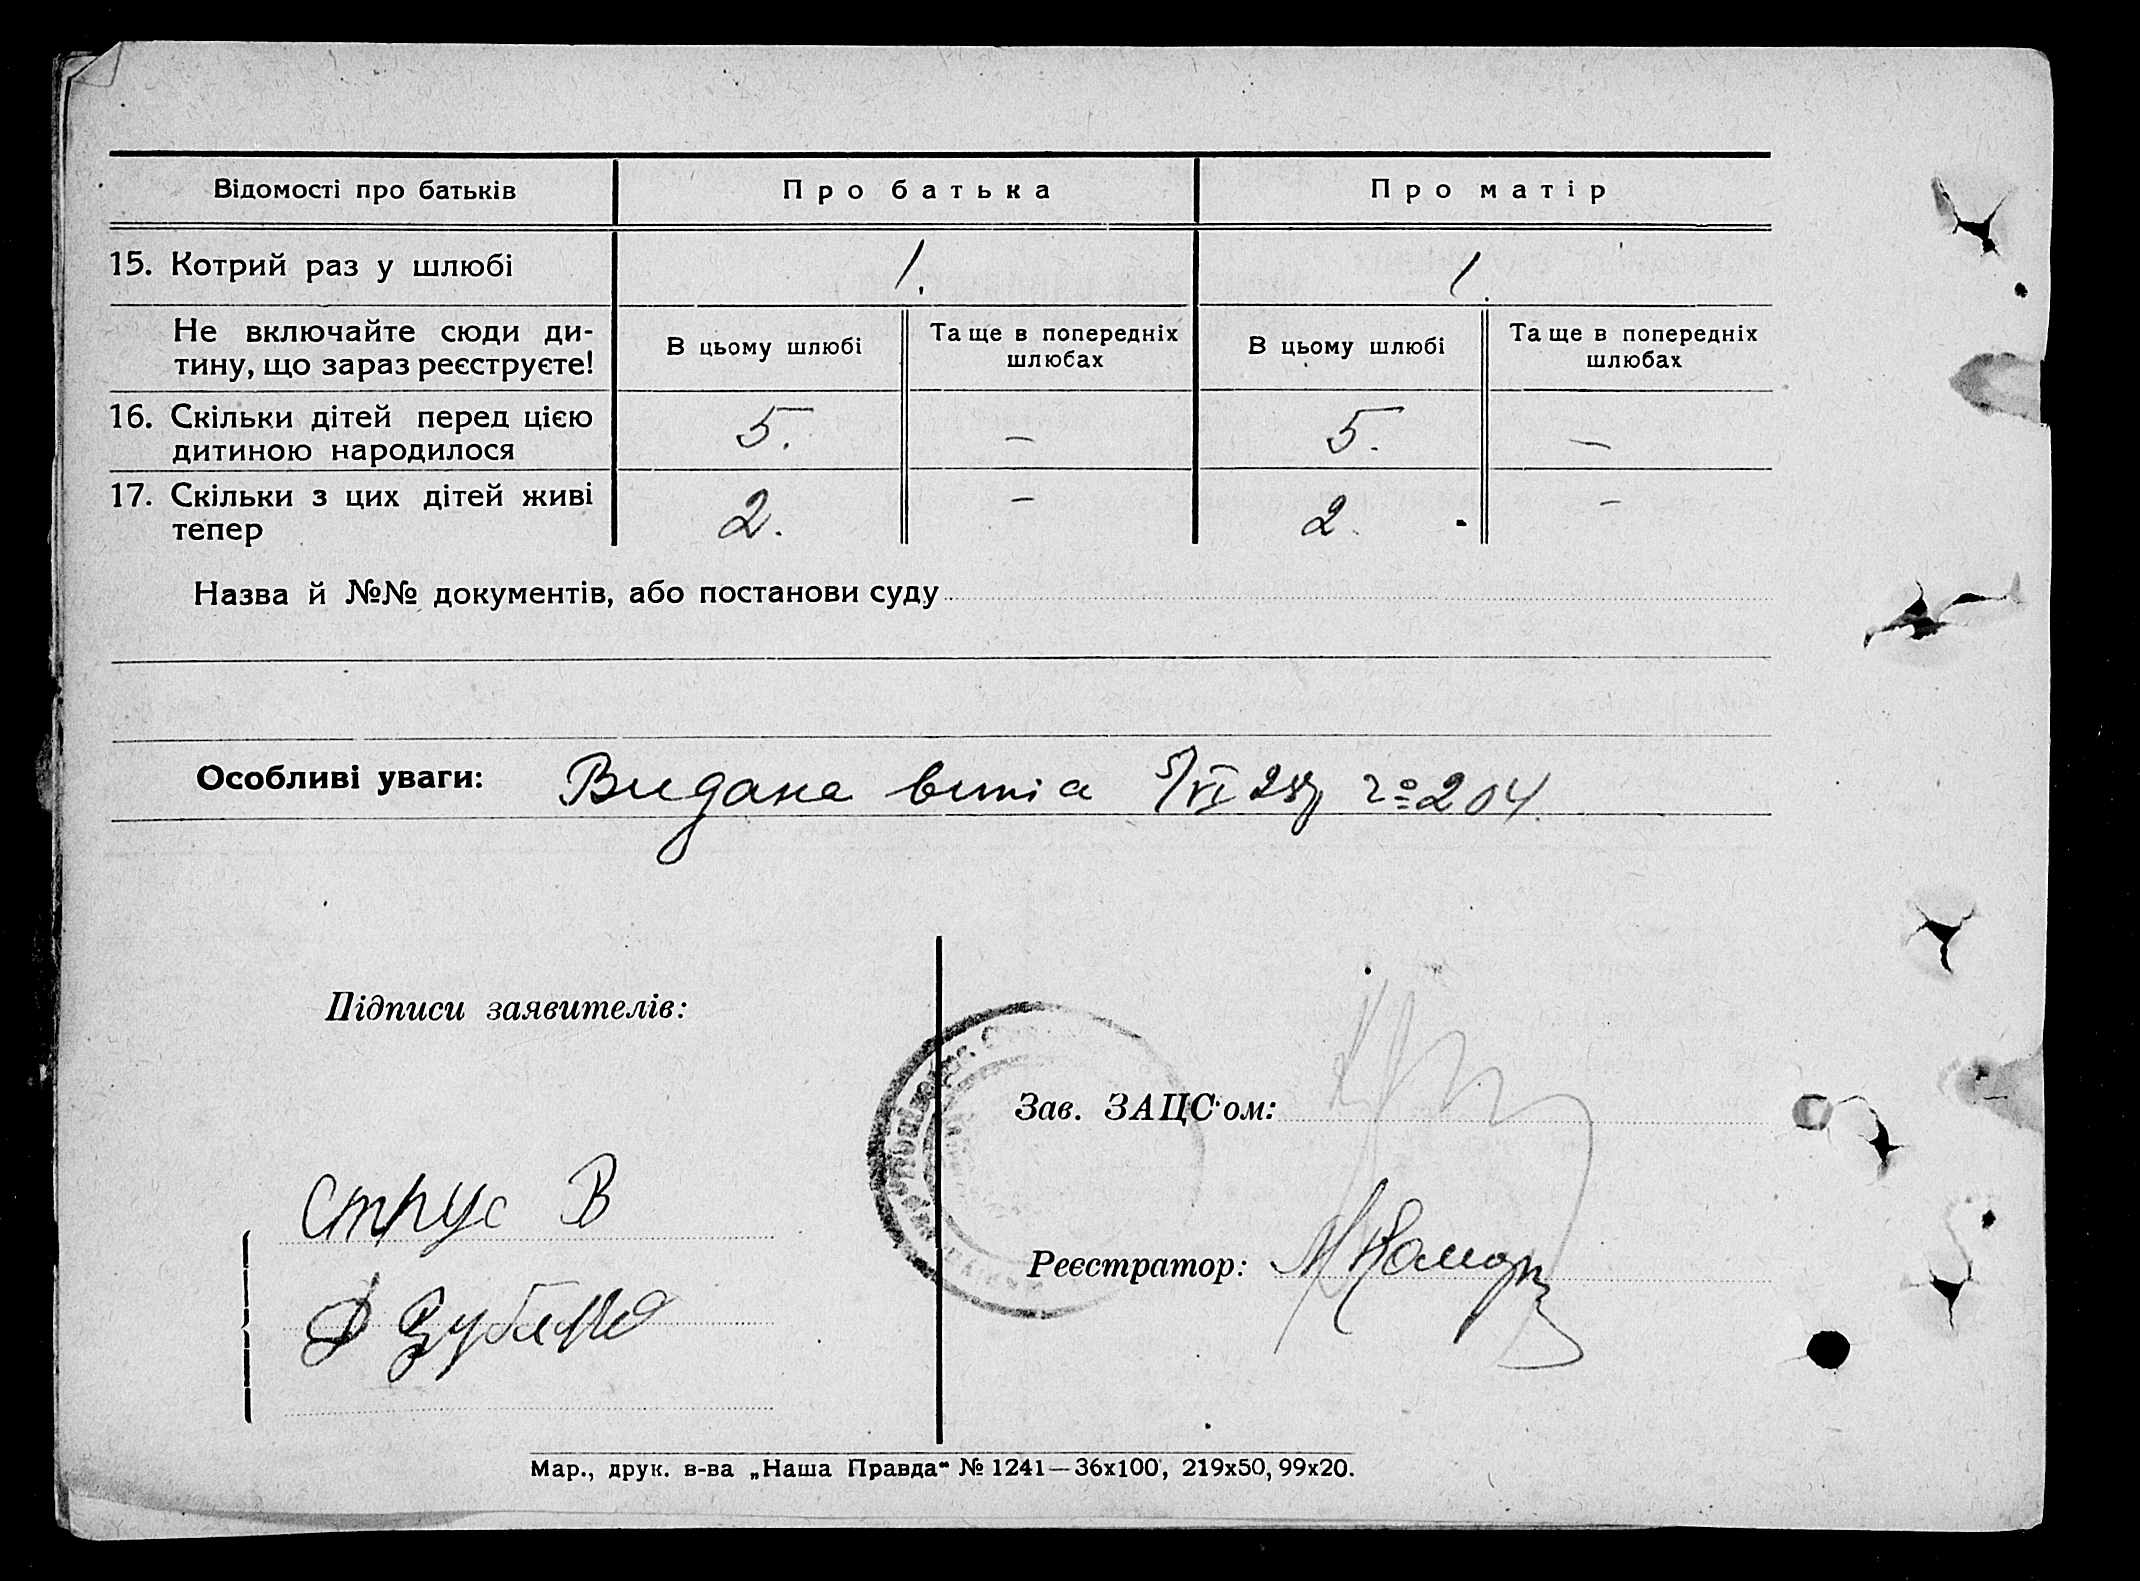 Відомості про батьків
Про батька
Про матір
15. Котрий раз у шлюбі
1.
1.
Не включайте сюди ди-
тину, що зараз реєструєте!
В цьому шлюбі
Та ще в попередніх
шлюбах
В цьому шлюбі
Та ще в попередніх
шлюбах
16. Скільки дітей перед цією
дитиною народилося
5.
—
5.
—
17. Скільки з цих дітей живі
тепер
2.
—
2.
—
Назва й №№ документів, або постанови суду
Особливі уваги: Видана 5/VI 204
Підписи заявителів:
Зав. ЗАЦС'ом:
Струс В
Реєстратор:
Мар., друк. в-ва „Наша Правда“ № 1241—36х100, 219х50, 99х20.